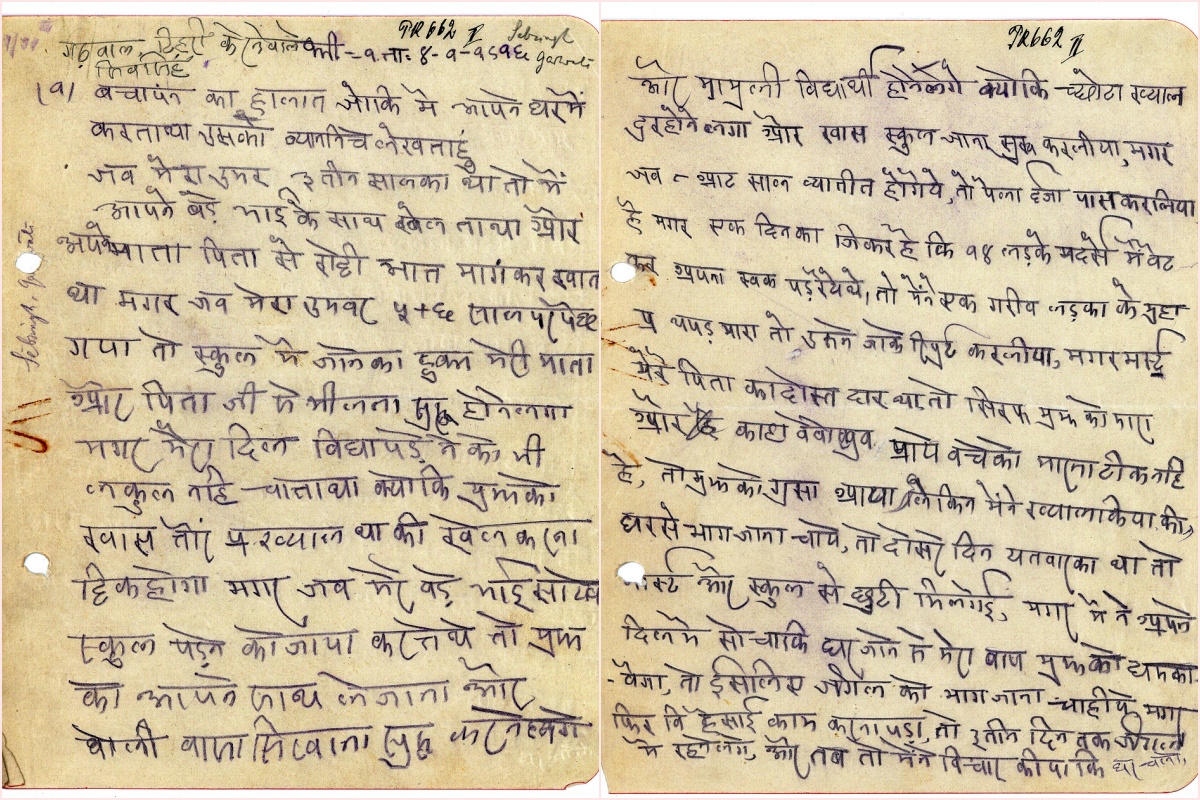 PR 662 II
Sebsingh
गढ़वाल टिहरी के रेनेवाले कापी=१ ता: ४-१-१९१६
शिवसिंह
(१) बचापन का हालात जोकि मे आपने घरमें
करताथा उसको व्यानीचे लेखताहुं
जब मेरा उमर ३तीन सालका था तो में
आपने बड़े भाई के साथ खेल ताथा और
अपने माता पिता से रोटी भात मागंकर खाता
था मगर जब मेरा उमर ५+६ साल पर पोंच
गया तो स्कुल मे जानेका हुकम मेरी माता
और पिता जी मे मीलना सुरू होनेलगा
मगर मेरा दिल विद्या पड़े ने को बी
लकुल नहि चाताथा क्योकि मुझको
खास तोर प्र ख्याल था की खेल करना
ठिकहोगा मगर जब मेरे बड़े भाई सायेब
स्कुल पड़ने को जाया करतेथे तो मुझ
को आपने साथ लेजाना और
बोली बाना सिखाना सुरू करनेलगे
Sebsingh, garwali
PR 662 II
और मामुली विद्यार्थी होनेलगे क्योकि छोटा ख्याल
दुरहोने लगा और खास स्कुल जाना सुरू करलीया, मगर
जब ८ आट साल व्यातीत होगेये, तो पेला दर्जा पास करलिया
है मगर एक दिनका जिकर है कि १४ लड़के मदर्से में बेट
कर अपना स्बक पड़रेयेथे, तो मैंने एक गरीब लड़का के मुहा
प्र थपड़ मारा तो उसने जाके रीपुर्ट करलीया, मगर मार्स्ट
मेरे पिता का दोस्त दार था, तो सिरफ मुझ को मारा
और कहा बेवोखुब प्रापे बचेको मारना टीक नहि
है, तो मुझ को गुसा आया, लेकिन मेंने ख्यालकिया की,
घरसे भाग जाना चाये, तो दोसरे दिन यतवारका था तो
मार्स्ट और स्कुल से छुटी मिलगेई, मगर में ने अपने
दिलमे सोचाकि घर जाने से मेरा बाप मुझको धमका-
-वेगा, तो ईसीलिए जंगल को भाग जाना चाहीये मगर
फिर बि हैसाई काम करना पड़ा, तो ३तीन दिन तक जंगल
मे रहनेलगे, और तब तो मेंने विचार कीया कि घर चलो,